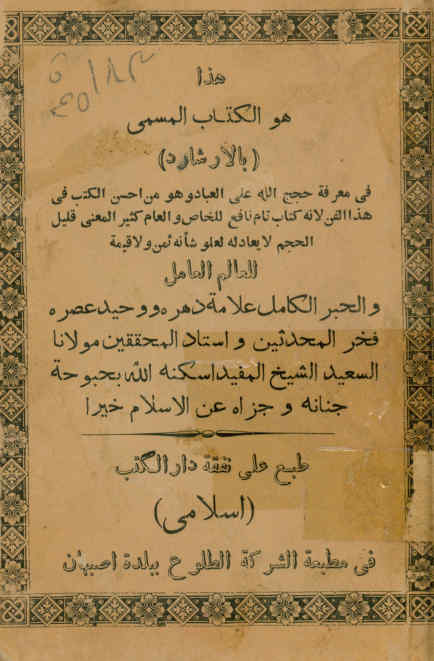 هذا
هو الكتاب المسمى
(بالارشاد)
فى معرفة حجج الله على العباد وهو من احسن الكتب فى
هذا الفن لانه كتاب تام نافع للخاص والعام كثير المعنى قليل
الحجم لا يعادله لعلو شأنه ثمن ولا قيمة
للعالم العامل
والحبر الكامل علامة دهره ووحيد عصره
فخر المحدثين و استاد المحققين مولانا
السعيد الشيخ المفيد اسكنه الله بحبوحة
جنانه و جزاه عن الاسلام خيرا
طبع على نفقة دار الكتب
(اسلامى)
فى مطبعة الشركة الطلوع ببلدة اصبهان